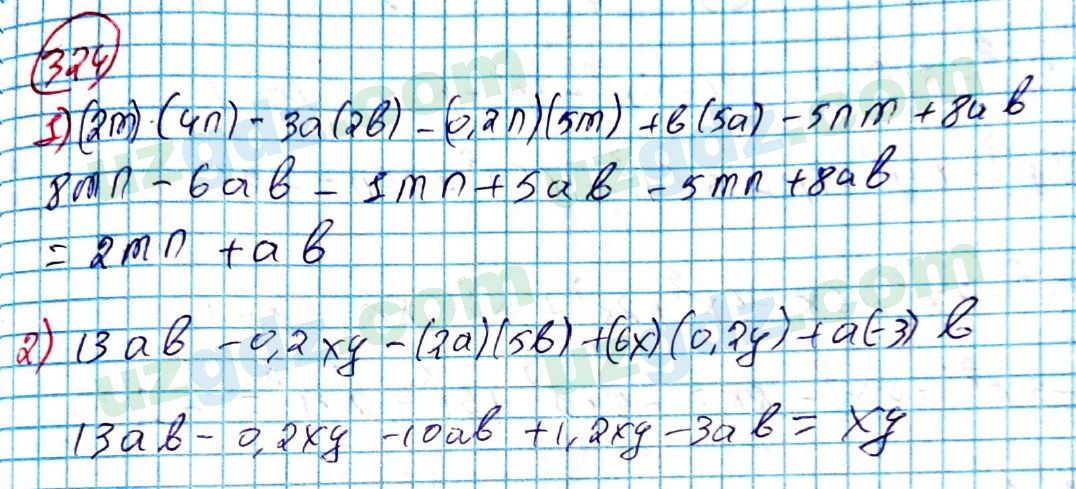 324
1) (2m)·(4n) - 3a(2b) - (0,2n)(5m) + b(5a) - 5nm + 8ab
8mn - 6ab - 1mn + 5ab - 5mn + 8ab
= 2mn + ab
2) 13ab - 0,2xy - (2a)(5b) + (6x)(0,2y) + a(-3)b
13ab - 0,2xy - 10ab + 1,2xy - 3ab = xy
uzgdz.com
uzgdz.com
uzgdz.com
uzgdz.com